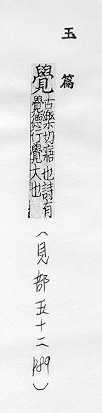 玉篇
覺古樂切寤也詩有
覺德行覺大也
(見部五十二 189)